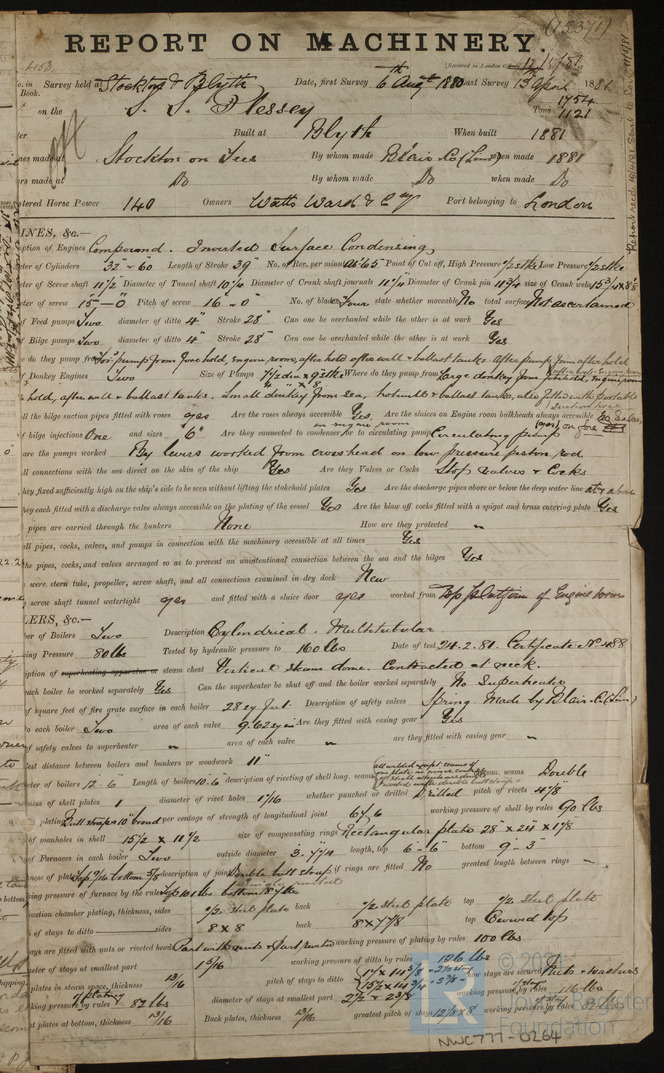 (15371)
REPORT ON MACHINERY.
No. in Survey held at Stockton & Blyth Date, first Survey 6th Augt 1880 Last Survey 13 April 1881
Book.
on the S. S. Plessey Tons 1754
1121
Built at Blyth When built 1881
made at Stockton on Tees By whom made Blair & Co (Lim) when made 1881
made at Do By whom made Do when made Do
Horse Power 140 Owners Watts Ward & Coy Port belonging to London
INES, &c.—
ption of Engines Compound. Inverted Surface Condensing
ter of Cylinders 32" - 60 Length of Stroke 39" No. of Rev. per minute ab 65 Point of Cut off, High Pressure 1/2 stke Low Pressure 1/2 stke
er of Screw shaft 11 1/2 Diameter of Tunnel shaft 10 3/4 Diameter of Crank shaft journals 11 3/4 Diameter of Crank pin 11 3/4 size of Crank webs
ter of screw 15"-0 Pitch of screw 16-0" No. of blades Four state whether moveable No total surface Not ascertained
Feed pumps Two diameter of ditto 4" Stroke 28" Can one be overhauled while the other is at work Yes
Bilge pumps Two diameter of ditto 4" Stroke 28" Can one be overhauled while the other is at work Yes
do they pump from For' pump from fore hold, Engine room, after hold after well & ballast tanks. After pump from after hold
Donkey Engines Two Size of Pumps Where do they pump from Large donkey from forehold, Engine room
hold, after well & ballast tanks. Small donkey from sea, hotwell & ballast tanks, also
ll the bilge suction pipes fitted with roses yes Are the roses always accessible Yes. Are the sluices on Engine room bulkheads always accessible
in engine room
of bilge injections One and sizes 6" Are they connected to condenser, or to circulating pump Circulating pump
are the pumps worked By levers worked from crosshead on low pressure piston rod
ll connections with the sea direct on the skin of the ship Yes Are they Valves or Cocks Stop valves & Cocks
hey fixed sufficiently high on the ship's side to be seen without lifting the stokehold plates Yes Are the discharge pipes above or below the deep water line at & above
hey each fitted with a discharge valve always accessible on the plating of the vessel Yes Are the blow off cocks fitted with a spigot and brass covering plate Yes
pipes are carried through the bunkers None How are they protected "
ll pipes, cocks, valves, and pumps in connection with the machinery accessible at all times Yes
he pipes, cocks, and valves arranged so as to prevent an unintentional connection between the sea and the bilges Yes
were stern tube, propeller, screw shaft, and all connections examined in dry dock New
screw shaft tunnel watertight yes and fitted with a sluice door yes worked from Top platform of Engine room
LERS, &c.—
ber of Boilers Two Description Cylindrical. Multitubular
ing Pressure 80 lbs Tested by hydraulic pressure to 160 lbs Date of test 24.2.81. Certificate No. 488
iption of superheating apparatus or steam chest Vertical steam dome. Contracted at neck.
each boiler be worked separately Yes Can the superheater be shut off and the boiler worked separately No Superheater
of square feet of fire grate surface in each boiler 28 sq feet. Description of safety valves Spring. Made by Blair & Co (Lim)
to each boiler Two area of each valve 9.62 sq in Are they fitted with easing gear Yes
of safety valves to superheater " area of each valve " are they fitted with easing gear "
est distance between boilers and bunkers or woodwork 11"
eter of boilers 12-6" Length of boilers 10-6 description of riveting of shell long. seams seams Double
ness of shell plates 1 diameter of rivet holes 1 1/16 whether punched or drilled Drilled pitch of rivets 4 7/8
plating Butt straps 10" broad per centage of strength of longitudinal joint working pressure of shell by rules 90 lbs
of manholes in shell 15 1/2 x 11 1/2 size of compensating rings Rectangular plate 28" x 24" x 1 1/8
of Furnaces in each boiler Two outside diameter 3-7 3/4 length, top 6-6" bottom 9-3"
ness of plates Top 9/16 bottom 5/8 description of joint Double butt straps if rings are fitted No greatest length between rings "
king pressure of furnace by the rules
bustion chamber plating, thickness, sides 9/32 steel plate back 9/32 steel plate top 9/32 steel plate
of stays to ditto sides 8 x 8 back 8 x 7 7/8 top Curved top
ays are fitted with nuts or riveted heads Part with nuts & part riveted working pressure of plating by rules 100 lbs
eter of stays at smallest part 1 5/16 working pressure of ditto by rules 106 lbs
plates in steam space, thickness 13/16 pitch of stays to ditto how stays are secured Nuts & washers
king pressure by rules 82 lbs diameter of stays at smallest part 2 1/2 & 2 3/8 working pressure by rules 116 lbs
nt plates at bottom, thickness 13/16 Back plates, thickness 13/16 greatest pitch of stays working pressure by rules
© 2021
Lloyd's Register
Foundation
NWC777-0264